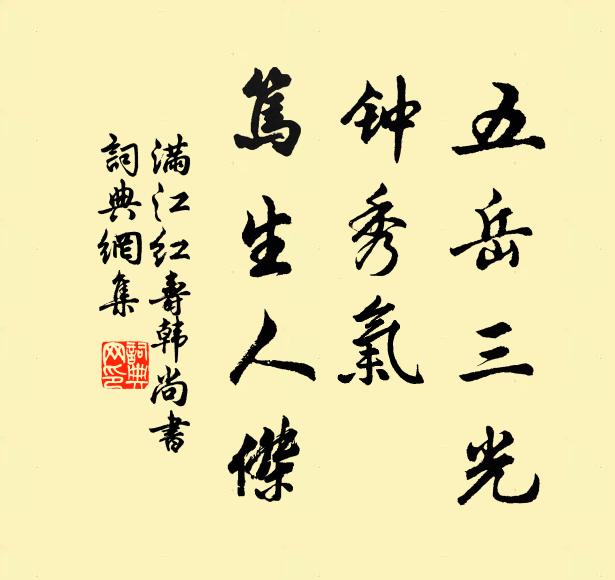 五岳三光
钟秀氣
篤生人傑
满江红壽韩尚書
詞典網集
詞典網印